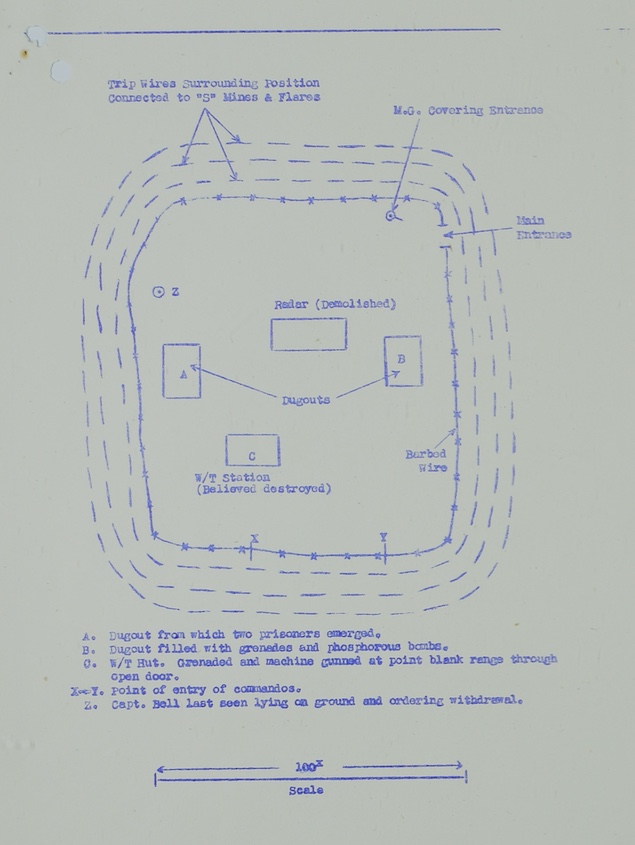 Trip Wires Surrounding Position
Connected to "S" Mines & Flares
M.G. Covering Entrance
Main
Entrance
Z
Radar (Demolished)
A
B
Dugouts
C
Barbed
Wire
W/T Station
(Believed destroyed)
X
Y
A. Dugout from which two prisoners emerged.
B. Dugout filled with grenades and phosphorous bombs.
C. W/T Hut. Grenaded and machine gunned at point blank range through
open door.
X-Y. Point of entry of commandos.
Z. Capt. Bell last seen lying on ground and ordering withdrawal.
100x
Scale